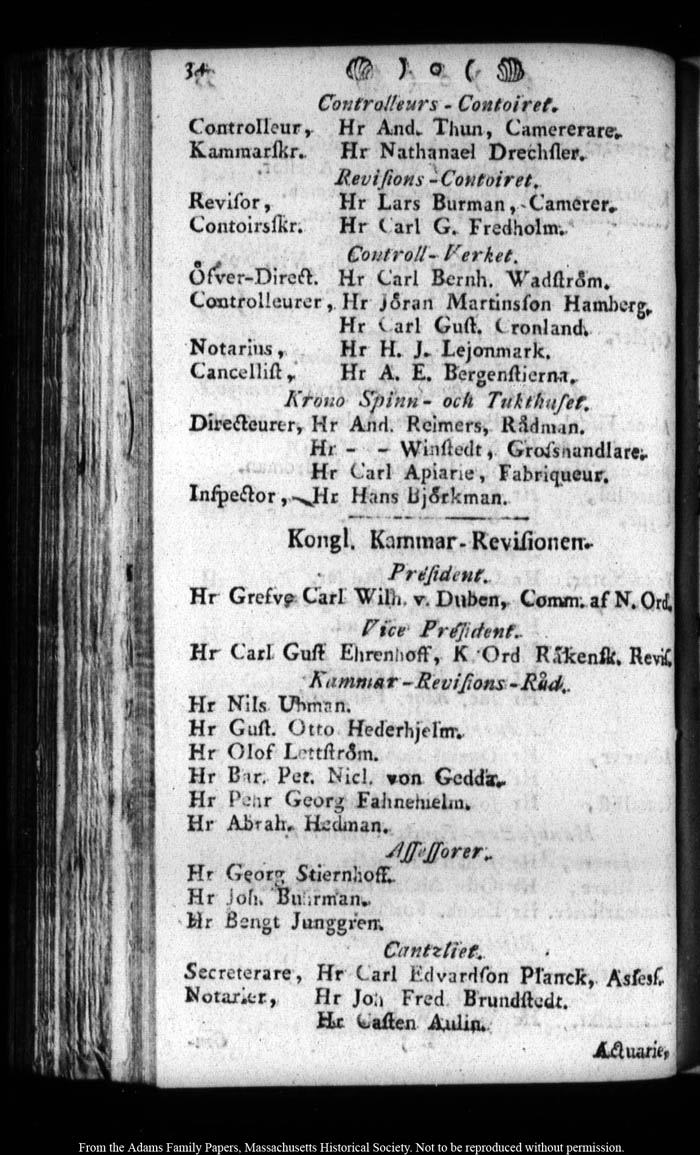 34 ) o (
Controlleurs-Contoiret.
Controlleur, Hr And. Thun, Camererare.
Kammarſkr. Hr Nathanael Drechſler.
Reviſions-Contoiret.
Reviſor, Hr Lars Burman, Camerer.
Contoirsſkr. Hr Carl G. Fredholm.
Controll-Verket.
Öfver-Direct. Hr Carl Bernh. Wadſtröm.
Controlleurer, Hr Jöran Martinsſon Hamberg.
Hr Carl Guſt. Cronland.
Notarius, Hr H. J. Lejonmark.
Cancelliſt, Hr A. E. Bergenſtierna.
Krono Spinn- och Tukthuſet.
Directeurer, Hr And. Reimers, Rådman.
Hr - - Winſtedt, Grosſhandlare.
Hr Carl Apiarie, Fabriqueur.
Inſpector, Hr Hans Björkman.
Kongl. Kammar-Reviſionen.
Préſident.
Hr Grefve Carl Wilh. v. Duben, Comm. af N. Ord.
Vice Préſident.
Hr Carl Guſt Ehrenhoff, K Ord Räkenſk. Reviſ.
Kammar-Reviſions-Råd.
Hr Nils Uhman.
Hr Guſt. Otto Hederhjelm.
Hr Olof Lettſtröm.
Hr Bar. Per. Nicl. von Gedda.
Hr Pehr Georg Fahnehielm.
Hr Abrah. Hedman.
Aſſeſſorer.
Hr Georg Stiernhoff.
Hr Joh. Buhrman.
Hr Bengt Junggren.
Cantzliet.
Secreterare, Hr Carl Edvardſon Planck, Asſesſ.
Notarier, Hr Joh Fred Brundſtedt.
Hr Caſten Aulin.
Actuarie,
From the Adams Family Papers, Massachusetts Historical Society. Not to be reproduced without permission.